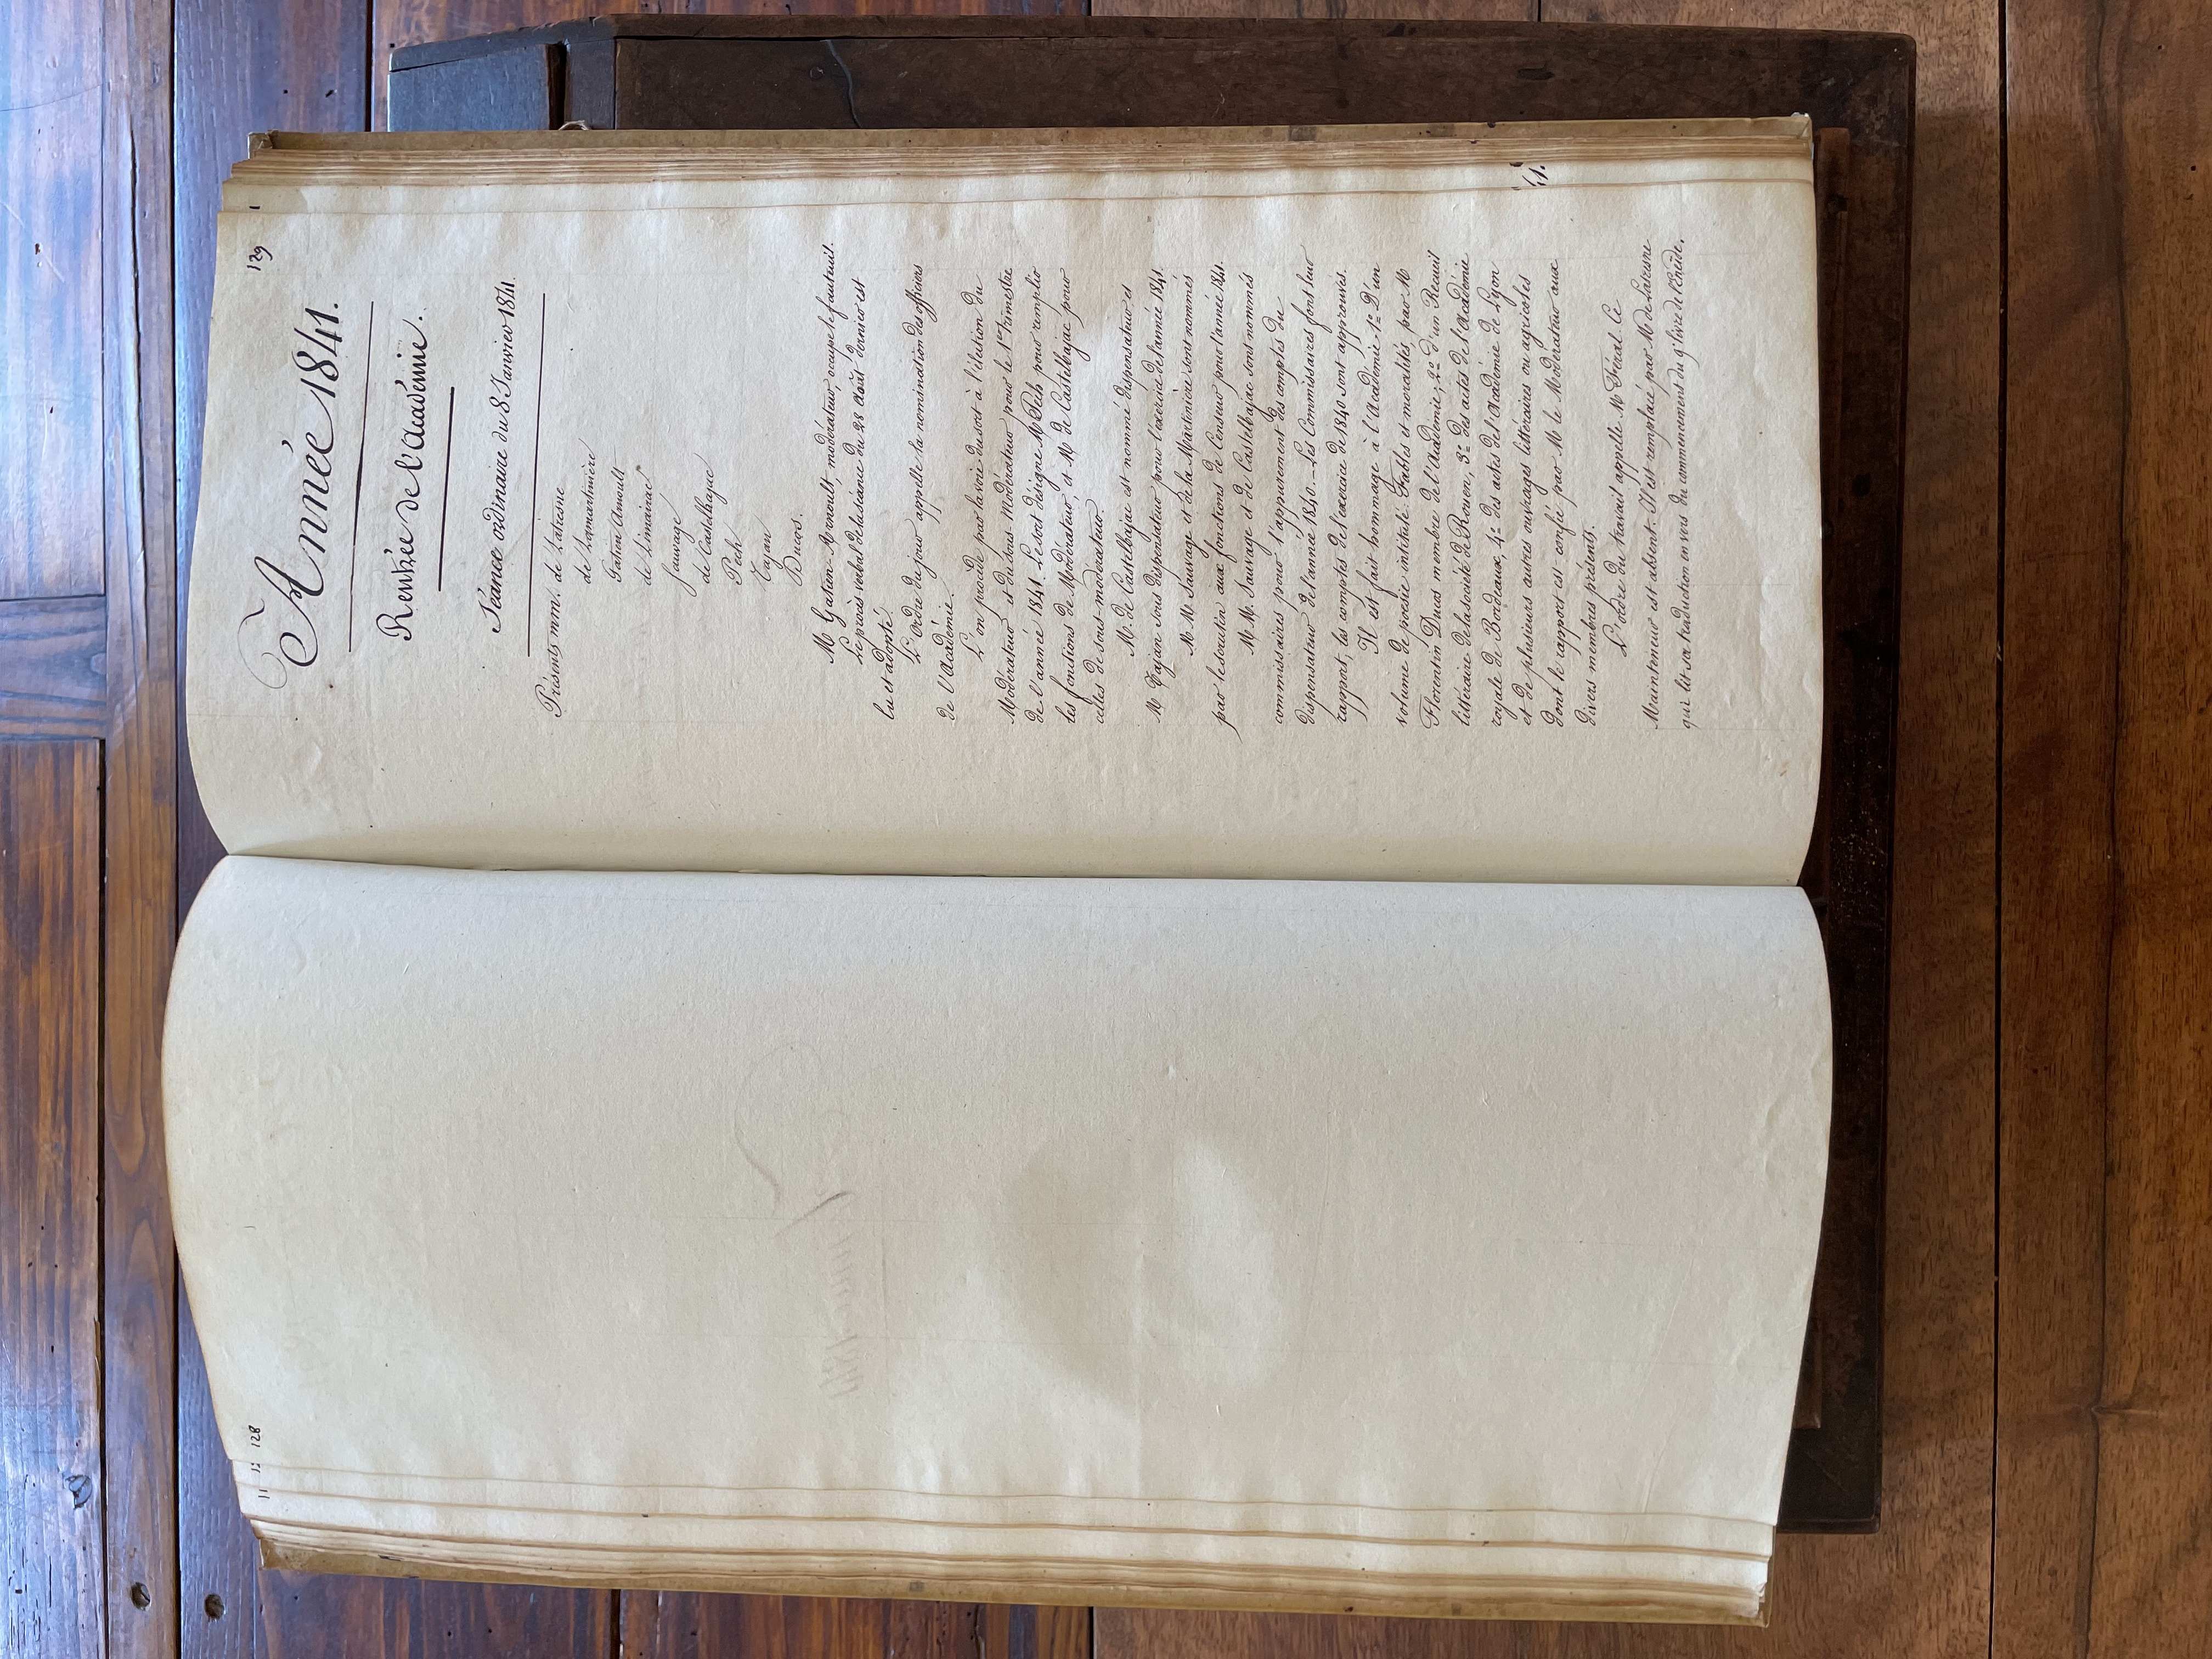 128
129
Année 1841.
Rentrée de l'académie.
Séance ordinaire du 8 Janvier 1841.
Présents mm. de Latresne
de Lamartinière
Gatien Arnoult
de Limairac
Sauvage
de Castelbajac
Pech
Tajan
Ducos.
M Gatien-Arnoult, modérateur, occupe le fauteuil.
Le procès verbal de la séance du 28 août dernier est
lu et adopté.
L'ordre du jour appelle la nomination des officiers
de l'Académie.
L'on procède par la voie du sort à l'élection du
Modérateur et du sous-Modérateur pour le 1er trimestre
de l'année 1841. Le sort désigne M Pech pour remplir
les fonctions de Modérateur, et M de Castelbajac pour
celles de sous-modérateur.
M. de Castelbajac est nommé dispensateur et
M Tajan sous dispensateur pour l'exercice de l'année 1841.
M M. Sauvage et de la Martinière sont nommés
par le scrutin aux fonctions de Censeur pour l'année 1841.
M M. Sauvage et de Castelbajac sont nommés
commissaires pour l'appurement des comptes du
dispensateur de l'année 1840. Les Commissaires font leur
rapport, les comptes de l'exercice de 1840 sont approuvés.
Il est fait hommage à l'Académie 1º D'un
volume de poesie intitulé Fables et moralités, par M
Florentin Ducos membre de l'Académie; 2º d'un Recueil
littéraire de la société de Rouen, 3º des actes de l'Académie
royale de Bordeaux, 4º des actes de l'Académie de Lyon
et de plusieurs autres ouvrages littéraires ou agricoles
dont le rapport est confié par M le Modérateur aux
divers membres présents.
L'ordre du travail appelle M Féral. Ce
Mainteneur est absent. Il est remplacé par M de Latresne
qui lit sa traduction en vers du commencement du 4e livre de l'Enéide.